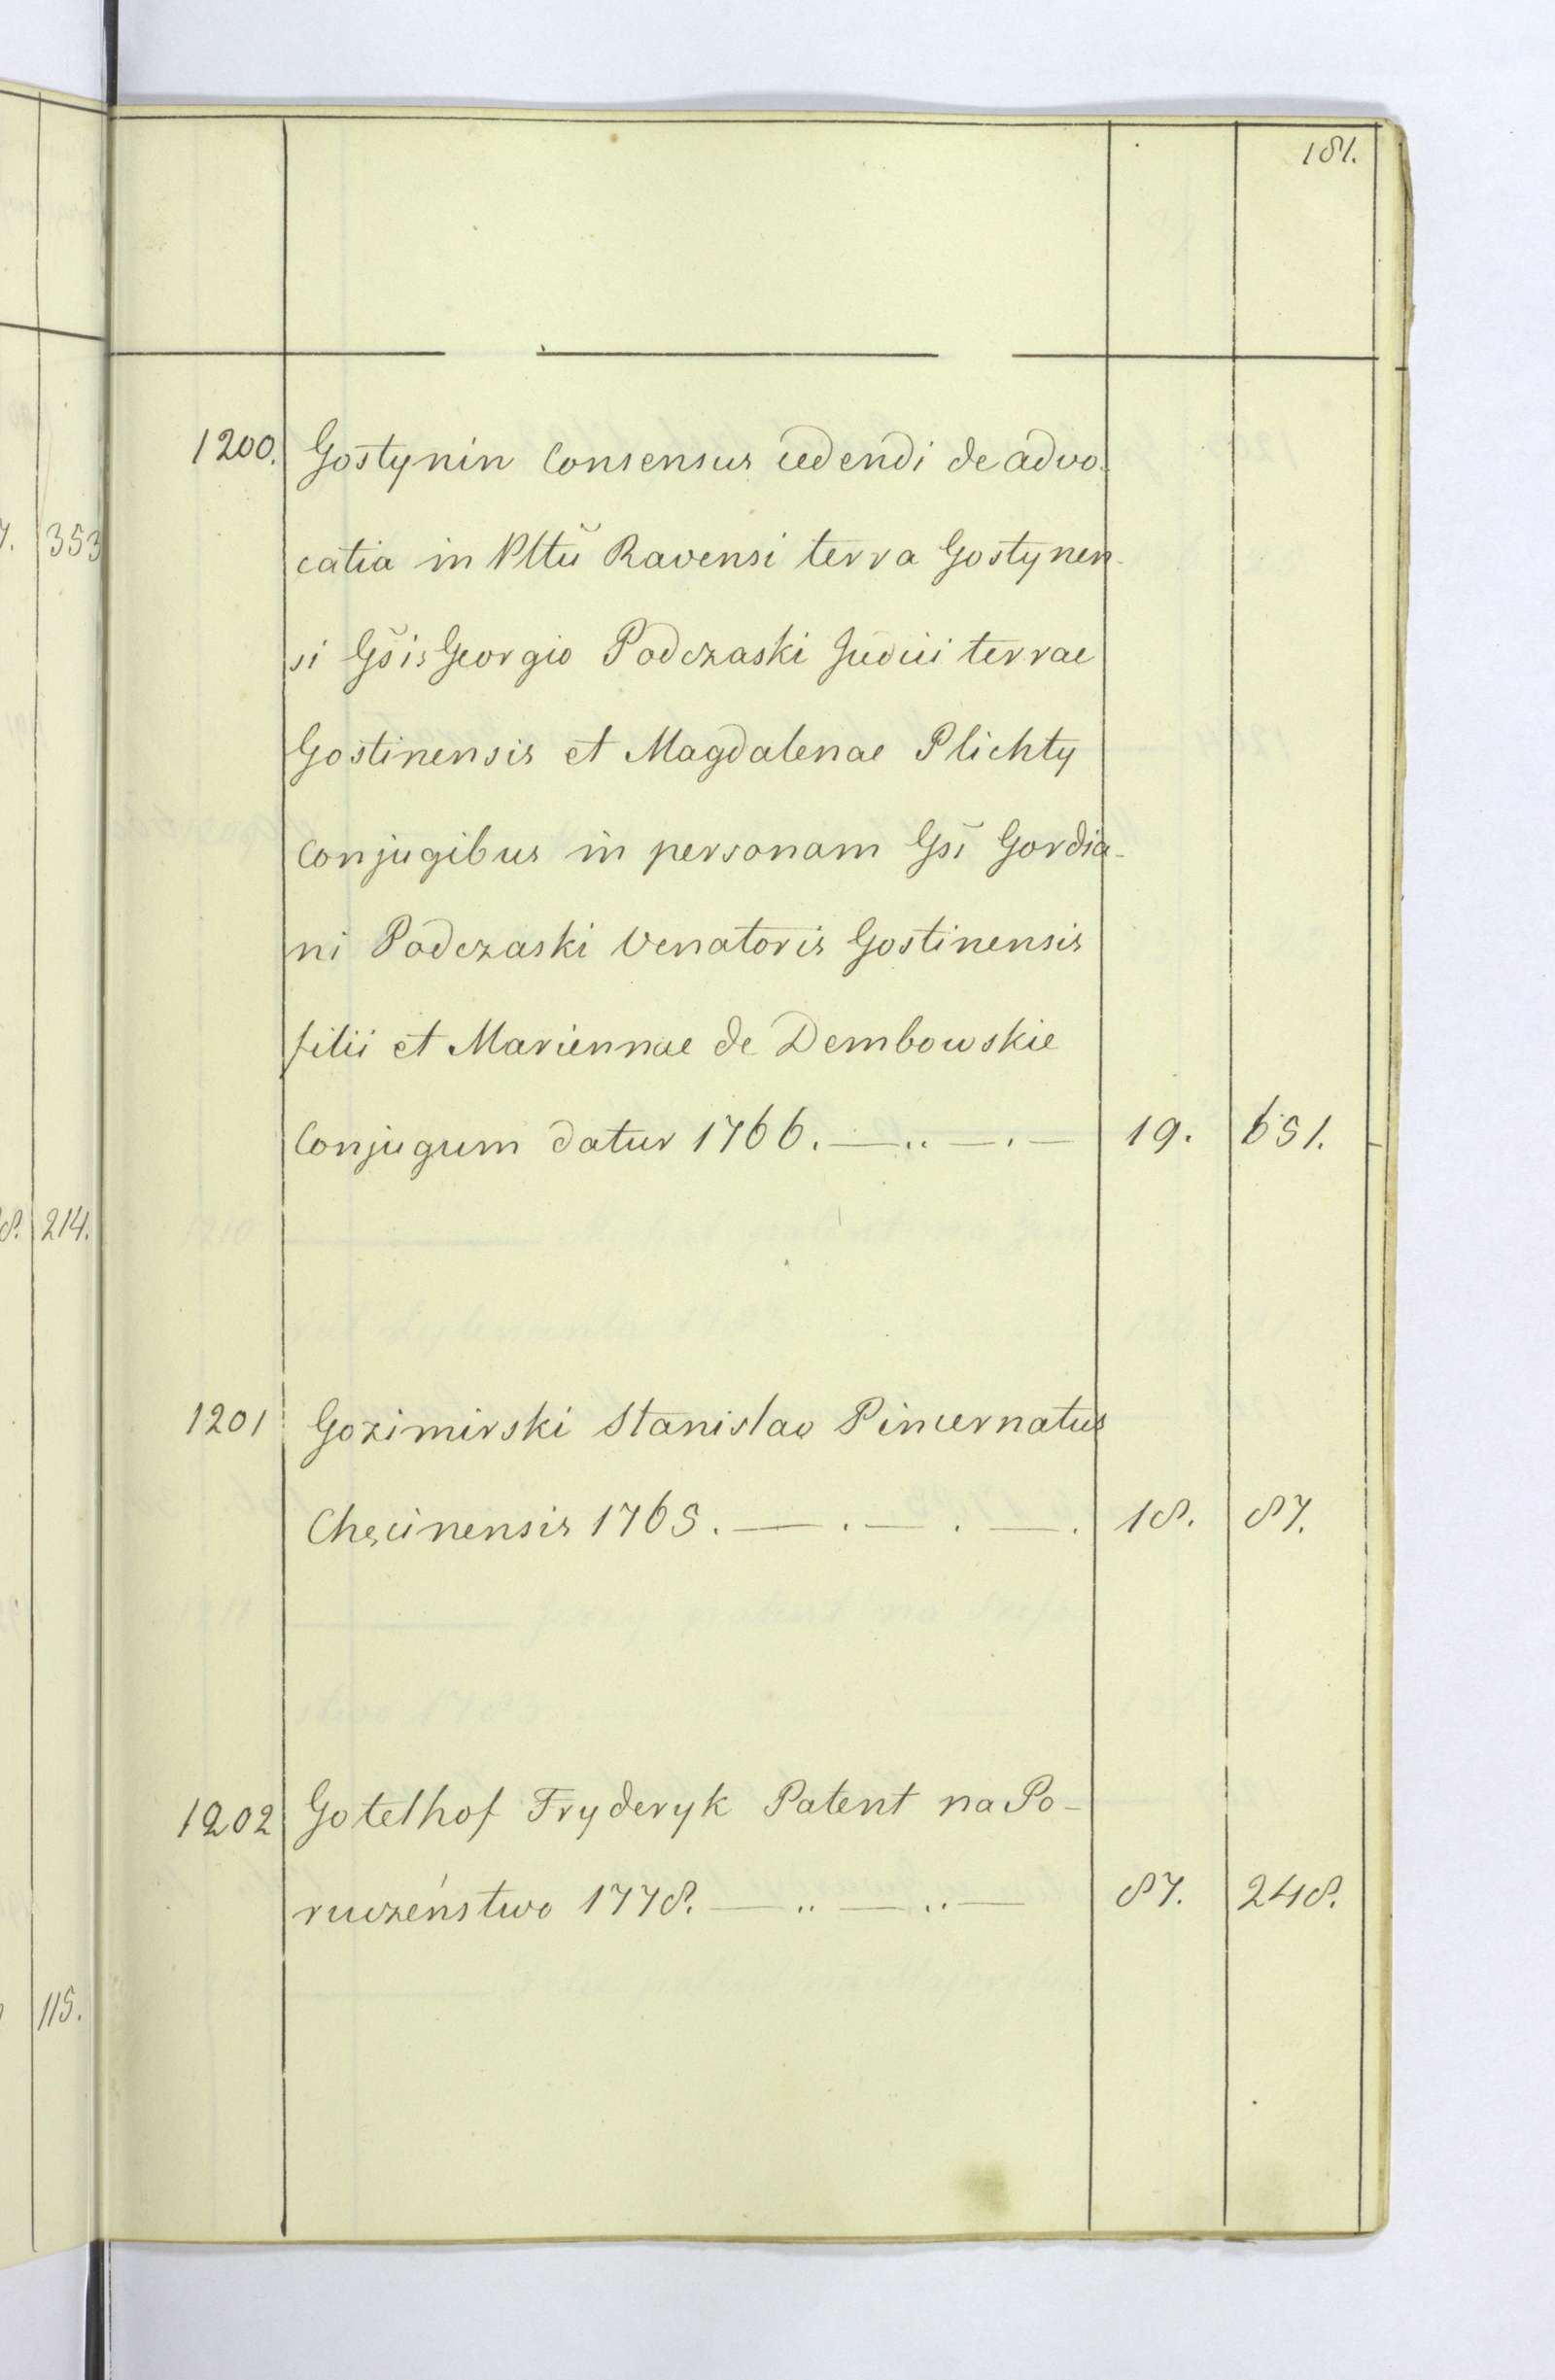 181.
1200. Gostynin Consensus cedendi de advo-
catia in Plttũ Ravensi terra Gostynen-
si Gs̃is Georgio Podczaski Judici terrae
Gostinensis et Magdalenae Plichty
Conjugibus in personam Gsĩ Gordia-
ni Podczaski Venatoris Gostinensis
filii et Mariennae de Dembowskie
Conjugum datur 1766. —..—.— 19. 651.
1201 Gozimirski Stanislao Pincernatus
Chęcinensis 1765. —.—.—. 18. 87.
1202 Gotelhof Fryderyk Patent na Po-
ruczeństwo 1778. —..—..— 87. 248.
353
8. 214.
115.